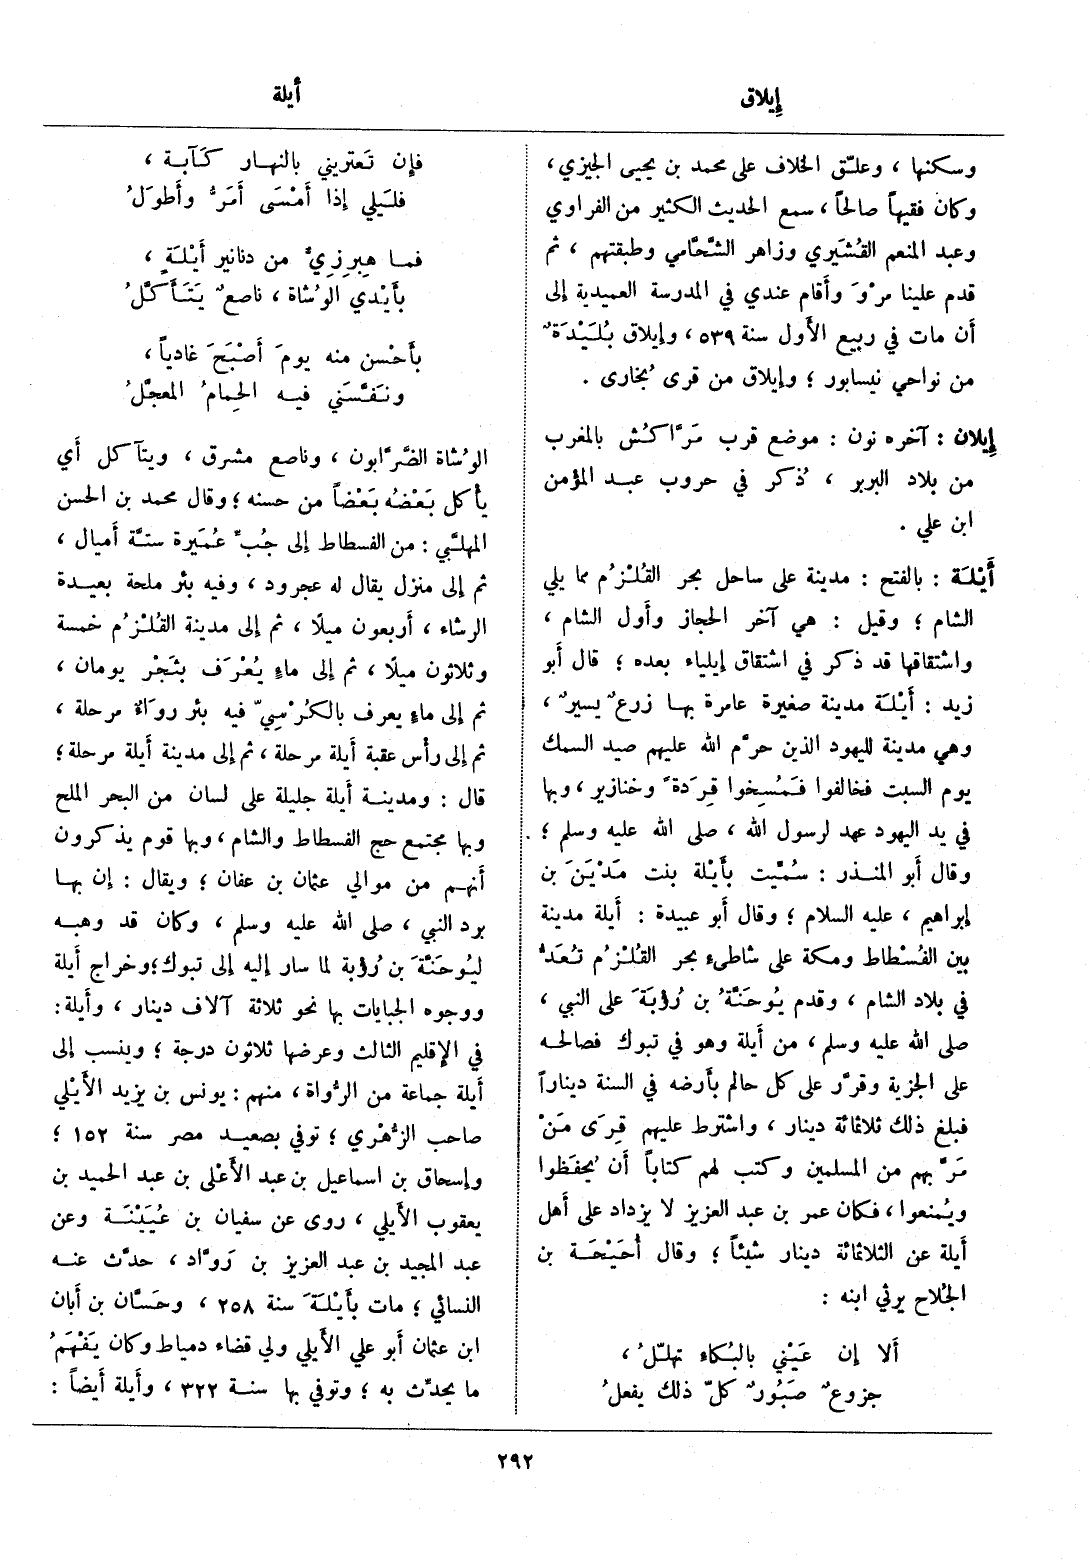 إيلاق
أيلة
وسكنها ، وعلّق الخلاف على محمد بن يحيى الجيزي،
وكان فقيهاً صالحاً، سمع الحديث الكثير من الفراوي
وعبد المنعم القُشَيري وزاهر الشَّحَّامي وطبقتهم ، ثم
قدم علينا مرْوَ وأقام عندي في المدرسة العميدية إلى
أن مات في ربيع الأول سنة ٥٣٩، وإيلاق بُلَيْدَةٌ
من نواحي نيسابور ؛ وإيلاق من قرى بُخارى .
إيلان : آخره نون : موضع قرب مَرَّاكُش بالمغرب
من بلاد البربر ، ذُكر في حروب عبد المؤمن
ابن علي .
أَيْلَة : بالفتح : مدينة على ساحل بحر القُلْزُم مما يلي
الشام ؛ وقيل : هي آخر الحجاز وأول الشام ،
واشتقاقها قد ذكر في اشتقاق إيلياء بعده ؛ قال أبو
زيد : أَيْلَة مدينة صغيرة عامرة بها زرعٌ يسيرٌ ،
وهي مدينة لليهود الذين حرَّم الله عليهم صيد السمك
يوم السبت فخالفوا فَمُسِخوا قِرَدةً وخنازير ، وبها
في يد اليهود عهد لرسول الله ، صلى الله عليه وسلم ؛
وقال أبو المنذر : سُمِّيت بأَيْلة بنت مَدْيَنَ بن
إبراهيم ، عليه السلام ؛ وقال أبو عبيدة : أيلة مدينة
بين الفُسْطاط ومكة على شاطىء بحر القُلْزُم تُعَدُّ
في بلاد الشام ، وقدم يُوحَنَّةُ بن رُؤبَةَ على النبي ،
صلى الله عليه وسلم ، من أيلة وهو في تبوك فصالحه
على الجزية وقرَّر على كل حالم بأرضه في السنة ديناراً
فبلغ ذلك ثلاثمائة دينار ، واشترط عليهم قِرَى مَنْ
مَرَّ بهم من المسلمين وكتب لهم كتاباً أن يُحفَظوا
ويُمنعوا ، فكان عمر بن عبد العزيز لا يزداد على أهل
أيلة عن الثلاثمائة دينار شيئاً ؛ وقال أُحَيْحَة بن
الجُلاح يرثي ابنه :
ألا إن عَيْني بالبُكاء تهلّلُ ،
جزوعٌ صَبُورٌ كلّ ذلك يفعلُ
فإن تَعتريني بالنهار كَآبة ،
فلَيلي إذا أَمْسَى أَمَرُّ وأَطولُ
فما هِبرِزِيٌّ من دنانير أَيْلَةٍ ،
بأَيْدي الوُشاة ، ناصعٌ يَتَأَكَّلُ
بأَحْسن منه يومَ أَصْبَحَ غادياً ،
ونَفَّسَني فيه الحِمامُ المعجَّلُ
الوُشاة الضَّرَّابون ، وناصع مشرق ، ويتآكل أي
يأكل بَعْضُه بَعْضاً من حسنه ؛ وقال محمد بن الحسن
المهلَّبي : من الفسطاط إلى جُبّ عُمَيرة ستة أميال ،
ثم إلى منزل يقال له عجرود ، وفيه بئر ملحة بعيدة
الرشاء ، أربعون ميلًا ، ثم إلى مدينة القُلْزُم خمسة
وثلاثون ميلًا ، ثم إلى ماءٍ يُعْرَف بتَجْر يومان ،
ثم إلى ماءٍ يعرف بالكُرْسيّ فيه بئر رواة مرحلة ،
ثم إلى رأس عقبة أيلة مرحلة ، ثم إلى مدينة أيلة مرحلة ؛
قال : ومدينة أيلة جليلة على لسان من البحر الملح
وبها مجتمع حج الفسطاط والشام ، وبها قوم يذكرون
أنهم من موالي عثمان بن عفان ؛ ويقال : إن بها
برد النبي ، صلى الله عليه وسلم ، وكان قد وهبه
ليُوحَنَّةَ بن رُؤبة لما سار إليه إلى تبوك ؛ وخراج أيلة
ووجوه الجبايات بها نحو ثلاثة آلاف دينار ، وأيلة :
في الإقليم الثالث وعرضها ثلاثون درجة ؛ وينسب إلى
أيلة جماعة من الرُّواة ، منهم : يونس بن يزيد الأَيْلي
صاحب الزُّهْري ؛ توفي بصعيد مصر سنة ١٥٢ ؛
وإسحاق بن اسماعيل بن عبد الأَعْلى بن عبد الحميد بن
يعقوب الأيلي ، روى عن سفيان بن عُيَيْنَة وعن
عبد المجيد بن عبد العزيز بن رَوَّاد ، حدَّث عنه
النسائي ؛ مات بأَيْلَةَ سنة ٢٥٨ ، وحَسَّان بن أَبان
ابن عثمان أبو علي الأيلي ولي قضاء دمياط وكان يَفْهَمُ
ما يحدِّث به ؛ وتوفي بها سنة ٣٢٢ ، وأَيلة أيضاً :
٢٩٢